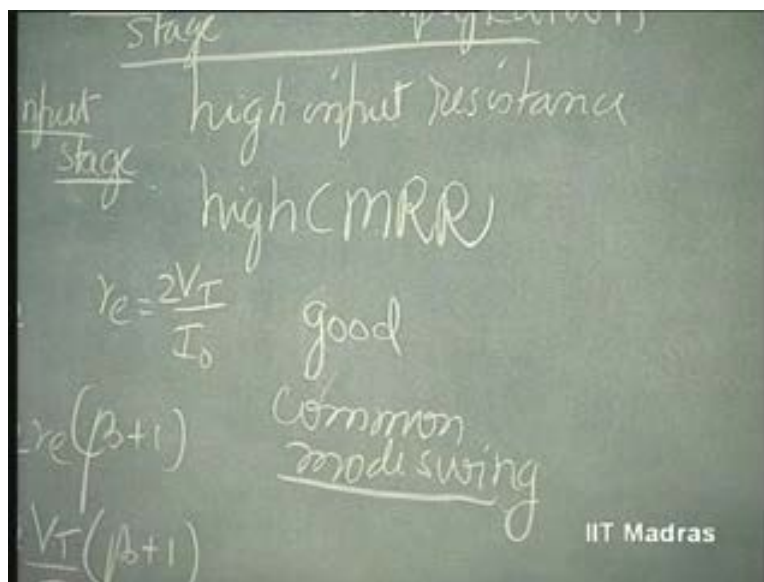 stage
input
stage
high input resistance
high CMRR
re = 2VT / I0
good
common
mode swing
2re(β+1)
VT(β+1)
IIT Madras